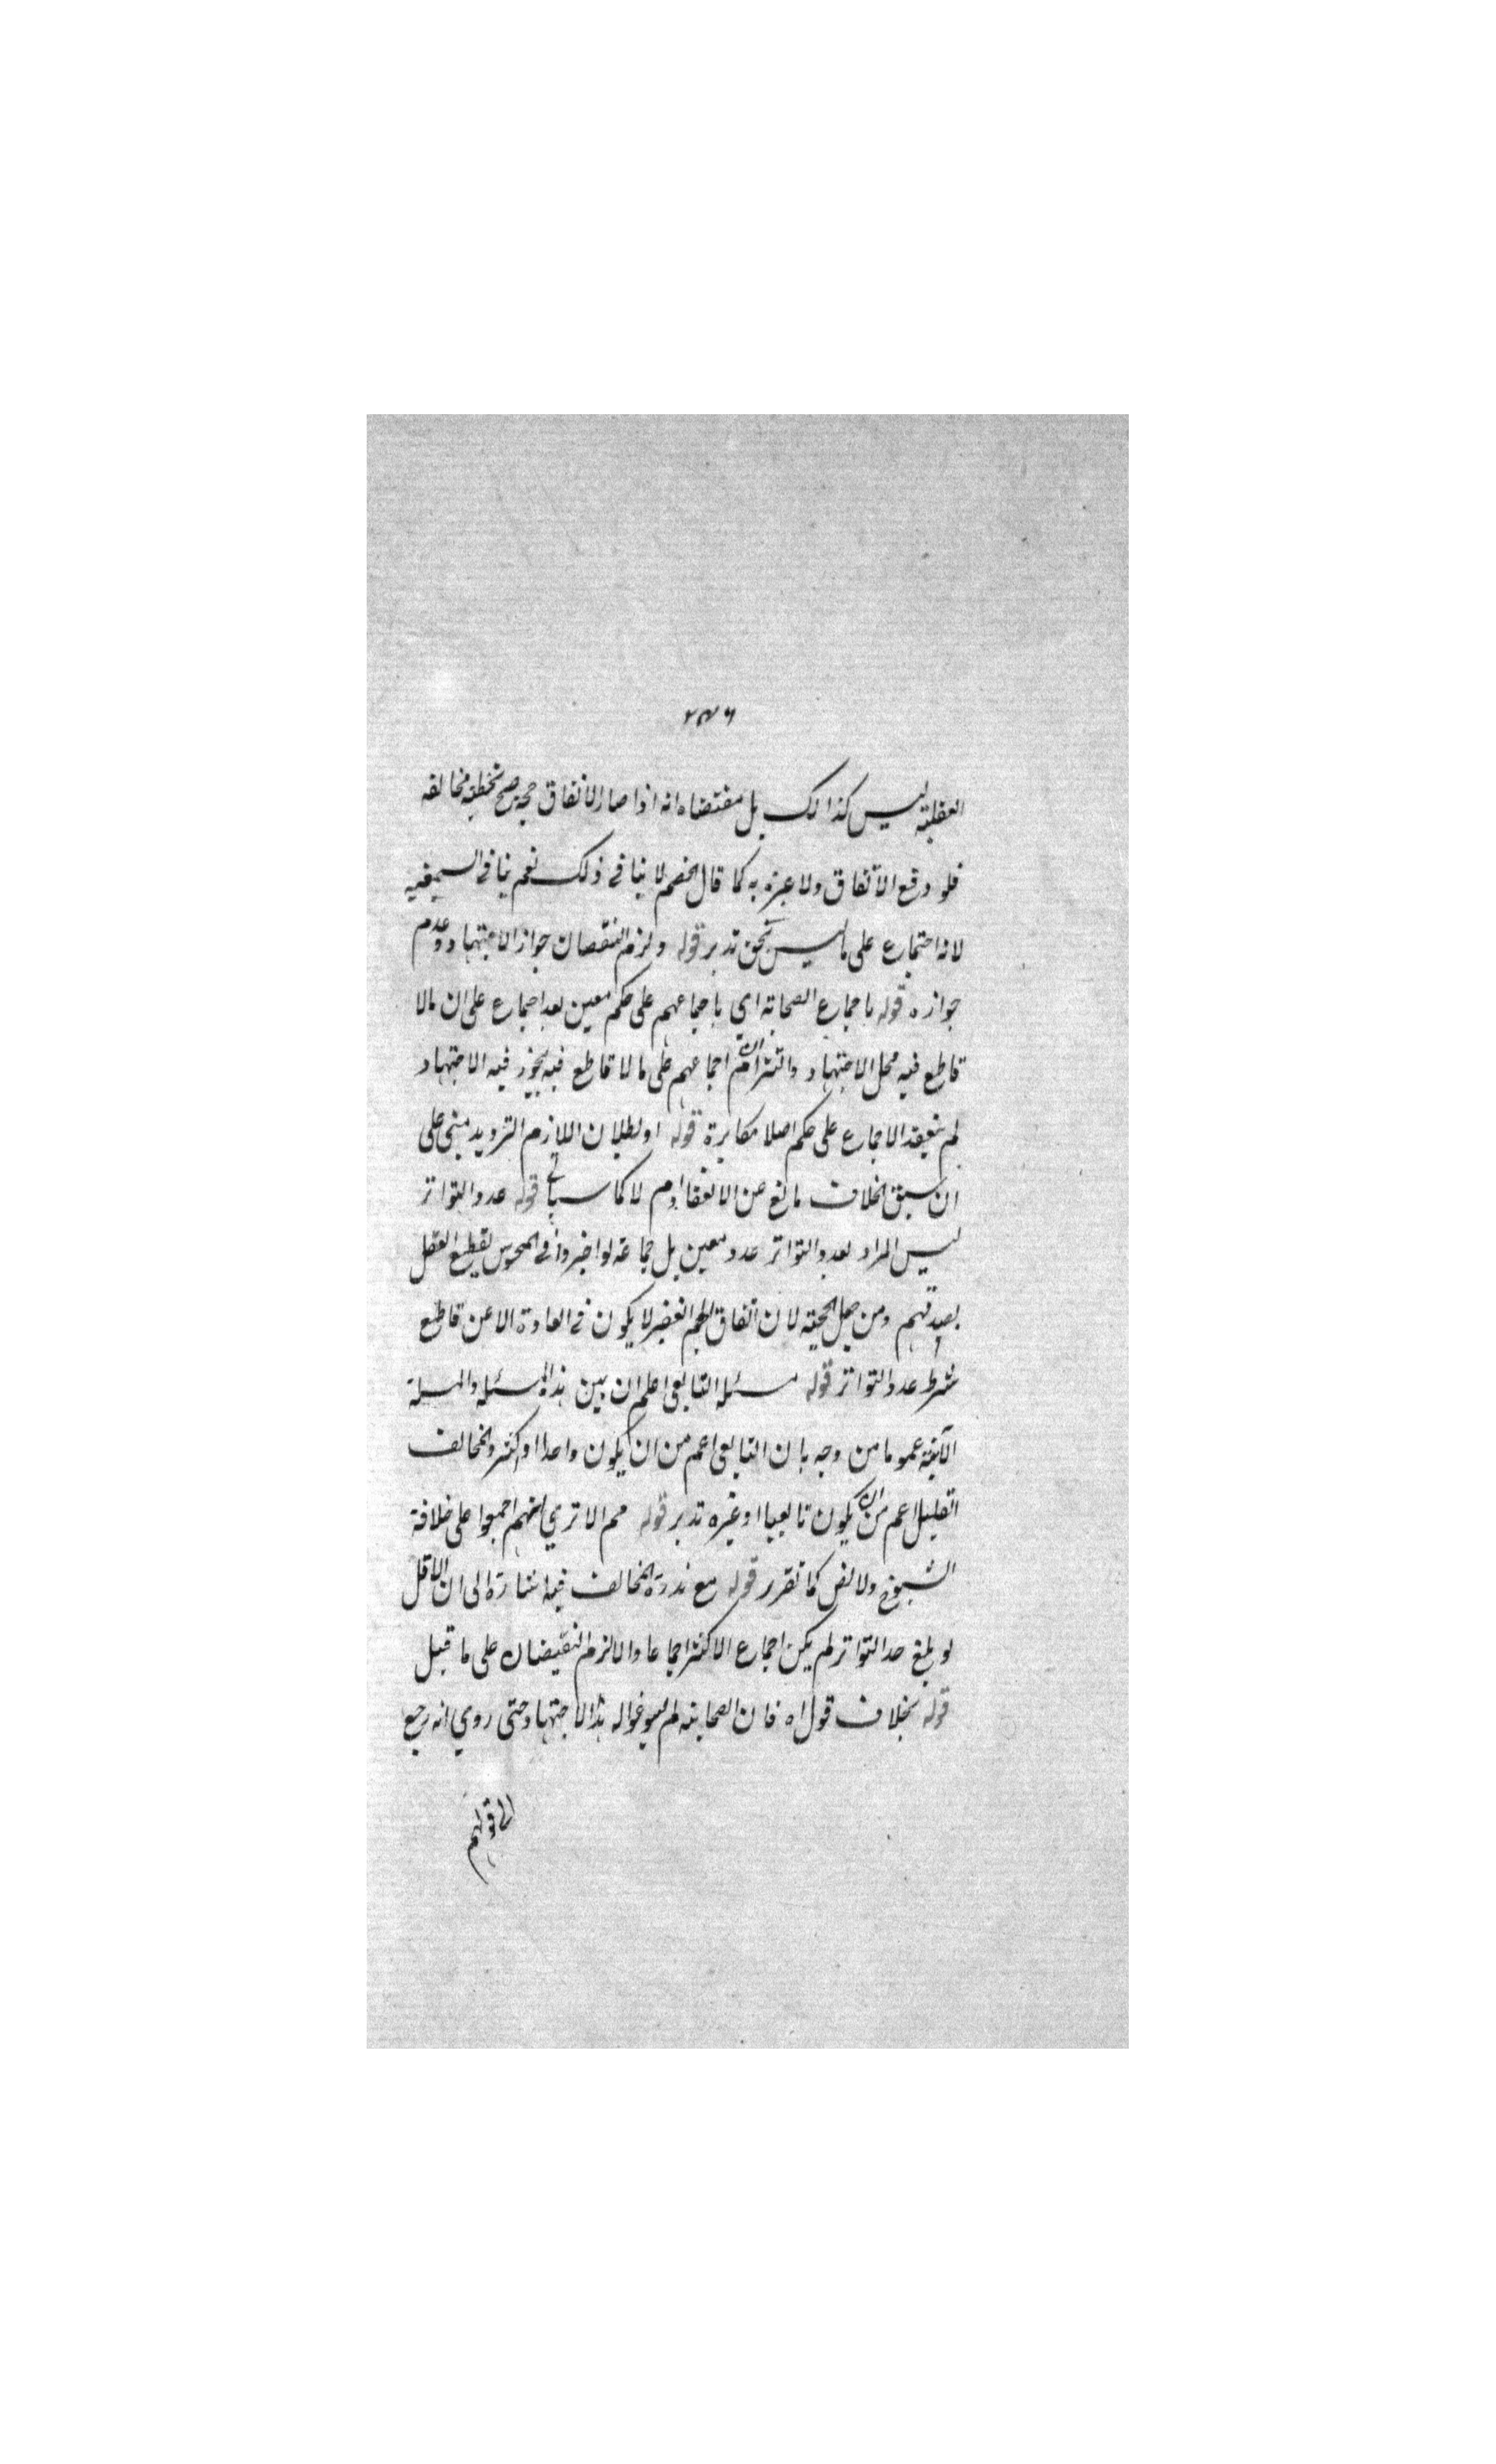 ٢٣٦
العقلية ليس كذالك بل مقتضاه انه اذا صار الاتفاق حجة صح تخطية مخالفه
فلو وقع الاتفاق ولا عبرة به كما قال الخصم لا ينافى ذلك نعم ينافى السمعية
لانه اجتماع على ما ليس بحق تدبر قوله ولزم النقصان جواز الاجتهاد وعدم
جوازه قوله باجماع الصحابة اى باجماعهم على حكم معين بعد اجماع على ان مالا
قاطع فيه محل الاجتهاد والتزام ان اجماعهم على ما لا قاطع فيه يجوز فيه الاجتهاد
لم ينعقد الاجماع على حكم اصلا مكابرة قوله او لبطلان اللازم الترديد مبنى على
ان سبق الخلاف مانع عن الانعقاد ام لا كما سياتى قوله عدد التواتر
ليس المراد بعدد التواتر عدد معين بل جماعة لو اخبروا فى المحسوس لقطع العقل
بصدقهم ومن جعل الحجية لان اتفاق الجم الغفير لا يكون فى العادة الا عن قاطع
شرط عدد التواتر قوله مسئلة التابعى اعلم ان بين هذه المسئلة والمسلة
الآتية عموما من وجه بان التابعى اعم من ان يكون واحدا او اكثر والمخالف
القليل اعم من ان يكون تابعيا او غيره تدبر قوله مم الا ترى انهم اجمعوا على خلافة
الشيوخ ولا نص كما تقرر قوله مع ندرة المخالف فيه اشارة الى ان الاقل
لو بلغ حد التواتر لم يكن اجماع الاكثر اجماعا والا لزم النقيضان على ما قيل
قوله بخلاف قول اه فان الصحابة لم يسوغوا له هذا الاجتهاد حتى روي انه رجع
الى قولهم